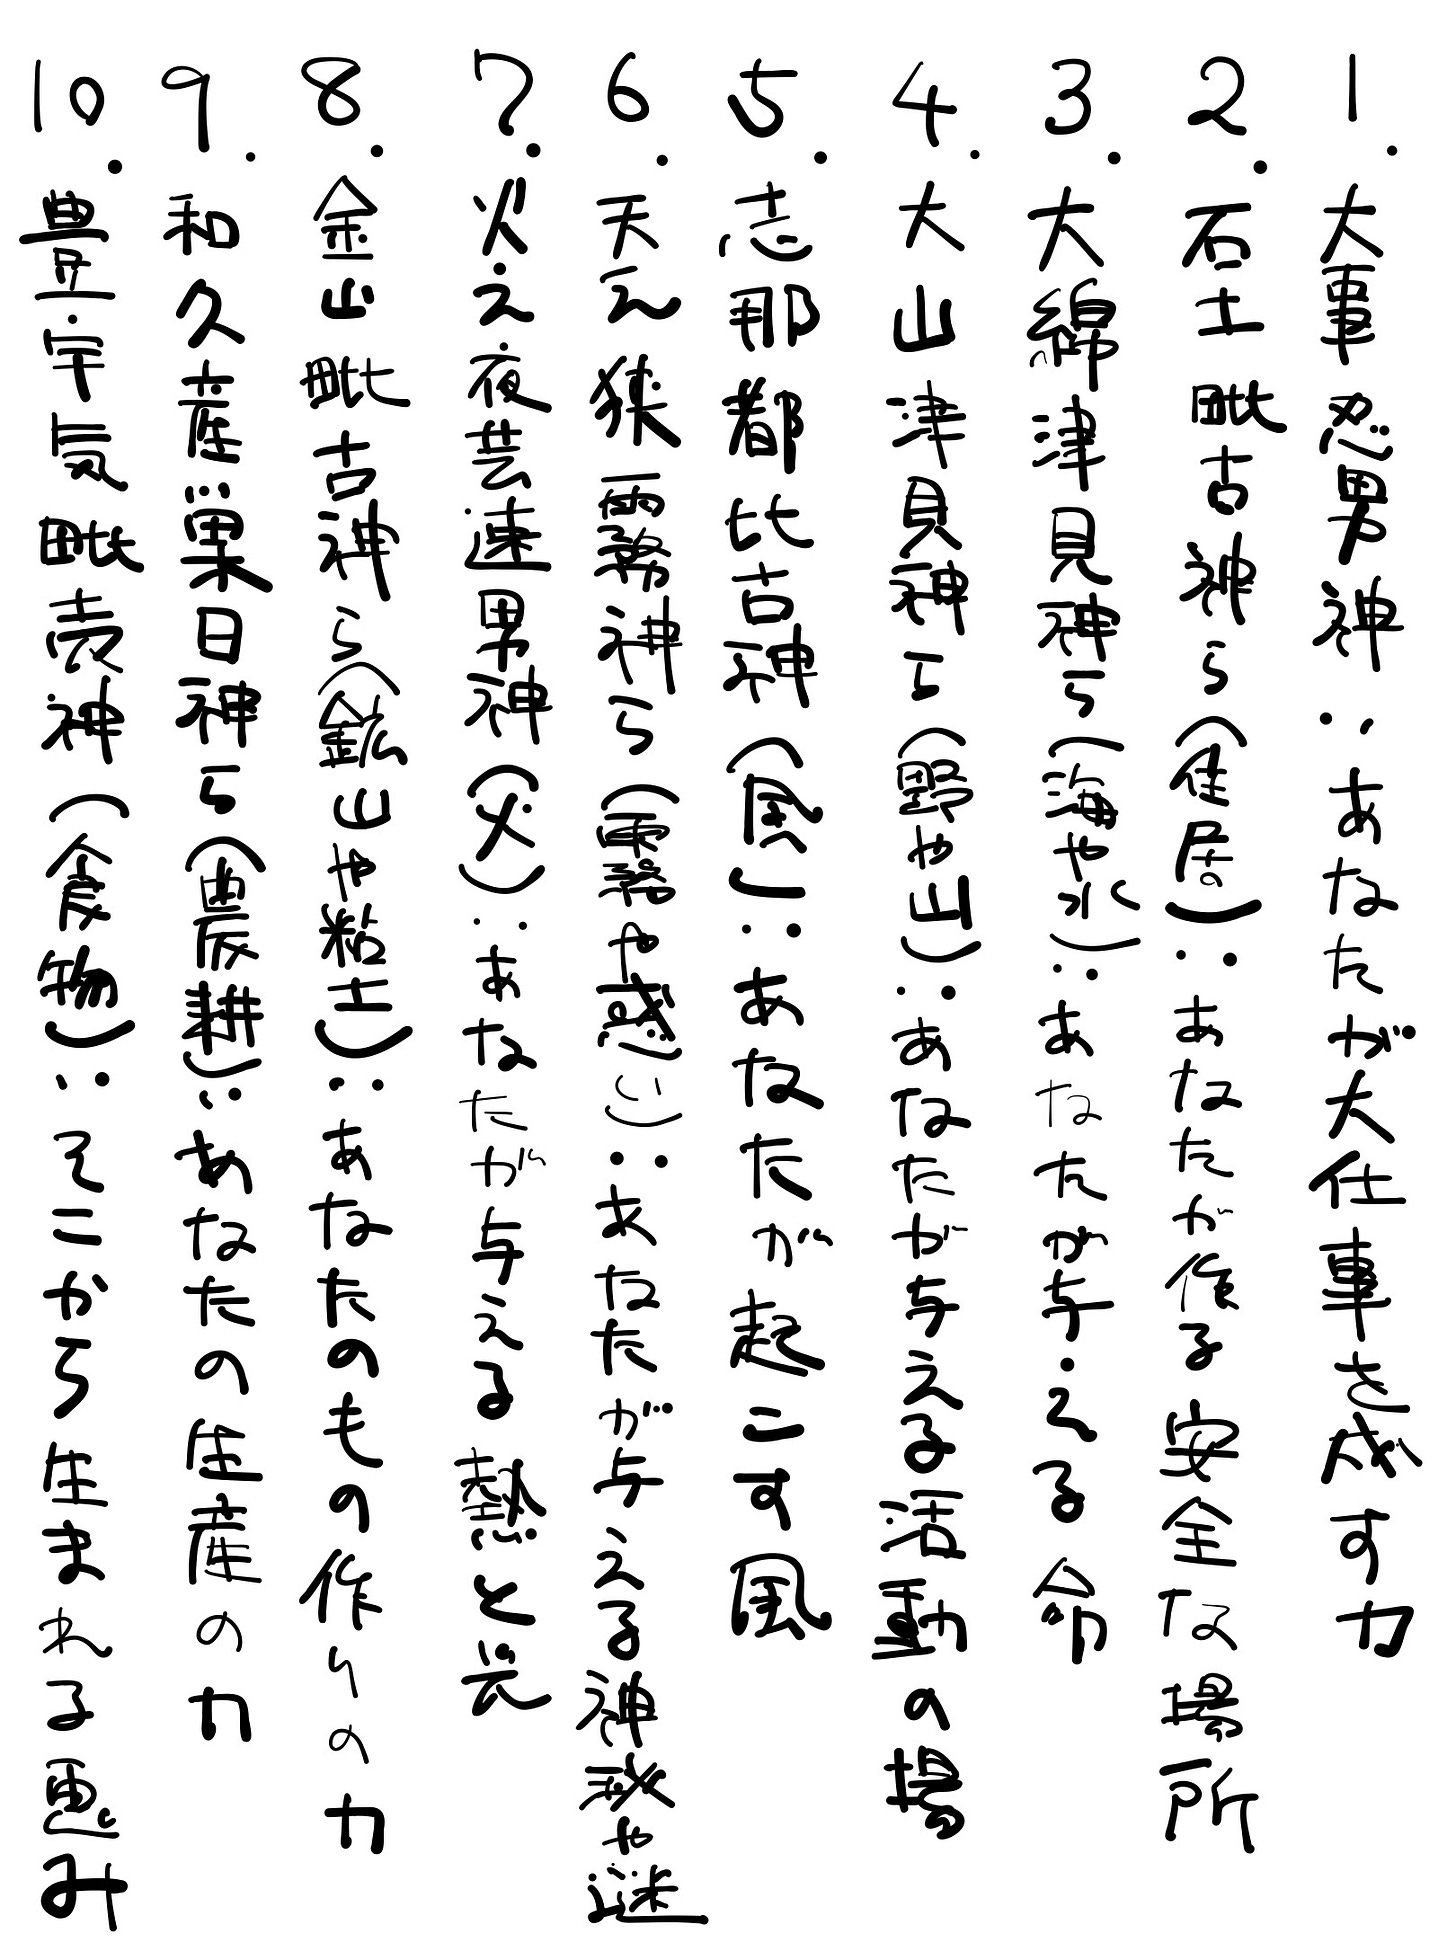 1.大事忍男神：あなたが大仕事を成す力
2.石土毗古神ら（住居）：あなたが作る安全な場所
3.大綿津見神ら（海や水）：あなたが与える命
4.大山津見神ら（野や山）：あなたが与える活動の場
5.志那都比古神（風）：あなたが起こす風
6.天之狭霧神ら（霧や惑い）：あなたが与える神秘や謎
7.火之夜芸速男神（火）：あなたが与える熱と光
8.金山毗古神ら（鉱山や粘土）：あなたのもの作りの力
9.和久産巣日神ら（農耕）：あなたの生産の力
10.豊宇気毗売神（食物）：そこから生まれる恵み